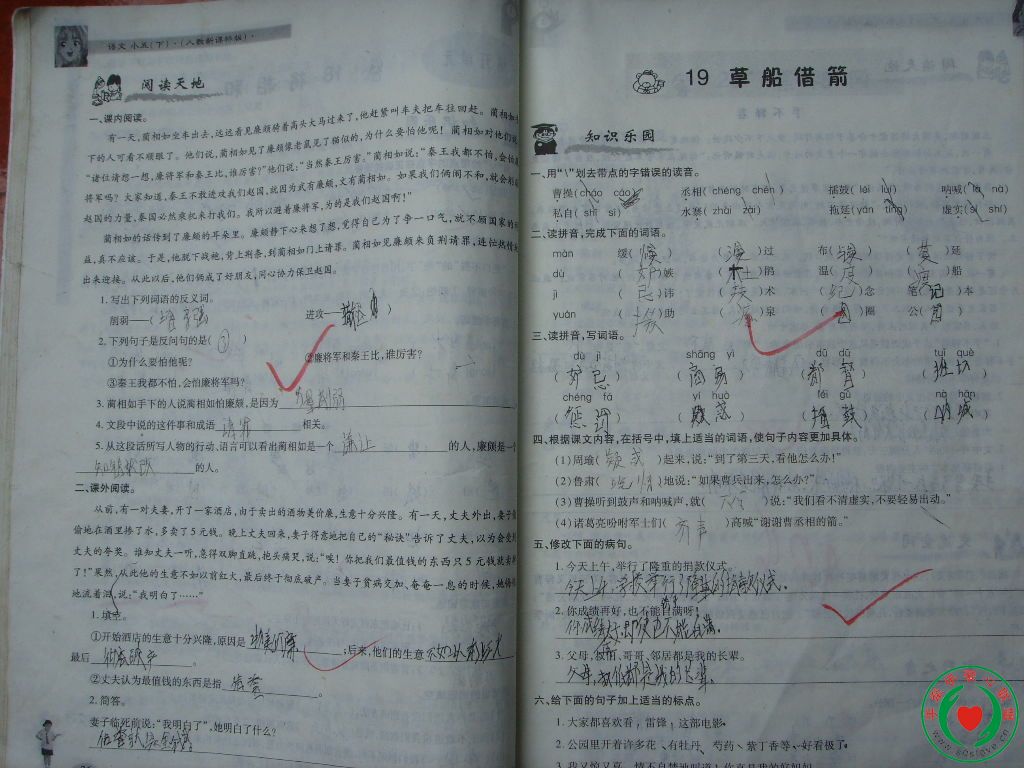 语文 小五(下)·(人教新课标版)·
阅读天地
一、课内阅读。
有一天,蔺相如坐车出去,远远看见廉颇骑着高头大马过来了,他赶紧叫车夫把车往回赶。蔺相如手
下的人可看不顺眼了。他们说,蔺相如见了廉颇像老鼠见了猫似的,为什么要怕他呢!蔺相如对他们说
“诸位请想一想,廉将军和秦王比,谁厉害?”他们说:“当然秦王厉害。”蔺相如说:“秦王我都不怕,会怕廉
将军吗?大家知道,秦王不敢进攻我们赵国,就因为武有廉颇,文有蔺相如。如果我们俩闹不和,就会削弱
赵国的力量,秦国必然乘机来打我们。我所以避着廉将军,为的是我们赵国啊!”
蔺相如的话传到了廉颇的耳朵里。廉颇静下心来想了想,觉得自己为了争一口气,就不顾国家的
益,真不应该。于是,他脱下战袍,背上荆条,到蔺相如门上请罪。蔺相如见廉颇来负荆请罪,连忙热情
出来迎接。从此以后,他们俩成了好朋友,同心协力保卫赵国。
1. 写出下列词语的反义词。
削弱——( 增强 ) 进攻—— )
2. 下列句子是反问句的是( ③ )
①为什么要怕他呢? ②廉将军和秦王比,谁厉害?
③秦王我都不怕,会怕廉将军吗?
3. 蔺相如手下的人说蔺相如怕廉颇,是因为
4. 文段中说的这件事和成语 请罪 相关。
5. 从这段话所写人物的行动、语言可以看出蔺相如是一个 谦让 的人,廉颇是一个
知错就改 的人。
二、课外阅读。
从前,有一对夫妻,开了一家酒店,由于卖出的酒物美价廉,生意十分兴隆。有一天,丈夫外出,妻子
偷地在酒里掺了水,多卖了5元钱。晚上丈夫回来,妻子得意地把自己的“秘诀”告诉了丈夫,以为会受
丈夫的夸奖。谁知丈夫一听,急得双脚直跳,抱头痛哭,说:“唉!你把我们最值钱的东西只5元钱就卖
了!”果然,从此他的生意不如以前红火,最后终于彻底破产。当妻子贫病交加、奄奄一息的时候,她
地流着泪,说:“我明白了……”
1. 填空。
①开始酒店的生意十分兴隆,原因是 物美价廉 ;后来,他们的生意 不如以前红火
最后 彻底破产 。
②丈夫认为最值钱的东西是指 信誉 。
2. 简答。
妻子临死前说:“我明白了”,她明白了什么?
19 草船借箭
知识乐园
一、用“\”划去带点的字错误的读音。
曹操(cháo cáo) 丞相(chéng chén) 擂鼓(léi lèi) 呐喊(là nà)
私自(shī sī) 水寨(zhài zài) 拖延(yán tíng) 虚实(sí shí)
二、读拼音,完成下面的词语。
màn 缓( 慢 ) ( 漫 )过 布( 幔 ) ( 蔓 )延
dù ( 妒 )嫉 ( 杜 )鹃 温( 度 ) ( 渡 )船
jì ( 忌 )讳 ( 技 )术 ( 纪 )念 笔( 记 )本
yuán ( 援 )助 ( 源 )泉 ( )圈 公( )
三、读拼音,写词语。
dù jì shāng yì dū dū tuī què
( 妒忌 ) ( 商易 ) ( 都督 ) ( )
chéng fá yí huò léi gǔ nà hǎn
( 惩罚 ) ( 疑惑 ) ( 擂鼓 ) ( 呐喊 )
四、根据课文内容,在括号中,填上适当的词语,使句子内容更加具体。
(1)周瑜( 疑惑 )起来,说:“到了第三天,看他怎么办!”
(2)鲁肃( 吃惊 )地说:“如果曹兵出来,怎么办?”
(3)曹操听到鼓声和呐喊声,就( 下令 )说:“我们看不清虚实,不要轻易出动。”
(4)诸葛亮吩咐军士们( 齐声 )高喊“谢谢曹丞相的箭。”
五、修改下面的病句。
1. 今天上午,举行了隆重的捐款仪式。
今天上午,学校举行了隆重的捐款仪式。
2. 你成绩再好,也不能自满呀!
3. 父母、叔伯、哥哥、邻居都是我的长辈。
六、给下面的句子加上适当的标点。
1. 大家都喜欢看,雷锋,这部电影。
2. 公园里开着许多花、有牡丹、芍药、紫丁香等、好看极了。
3. 我又惊又喜,情不自禁地喊道!你真是我的好妈妈
www.sqsleve.cn